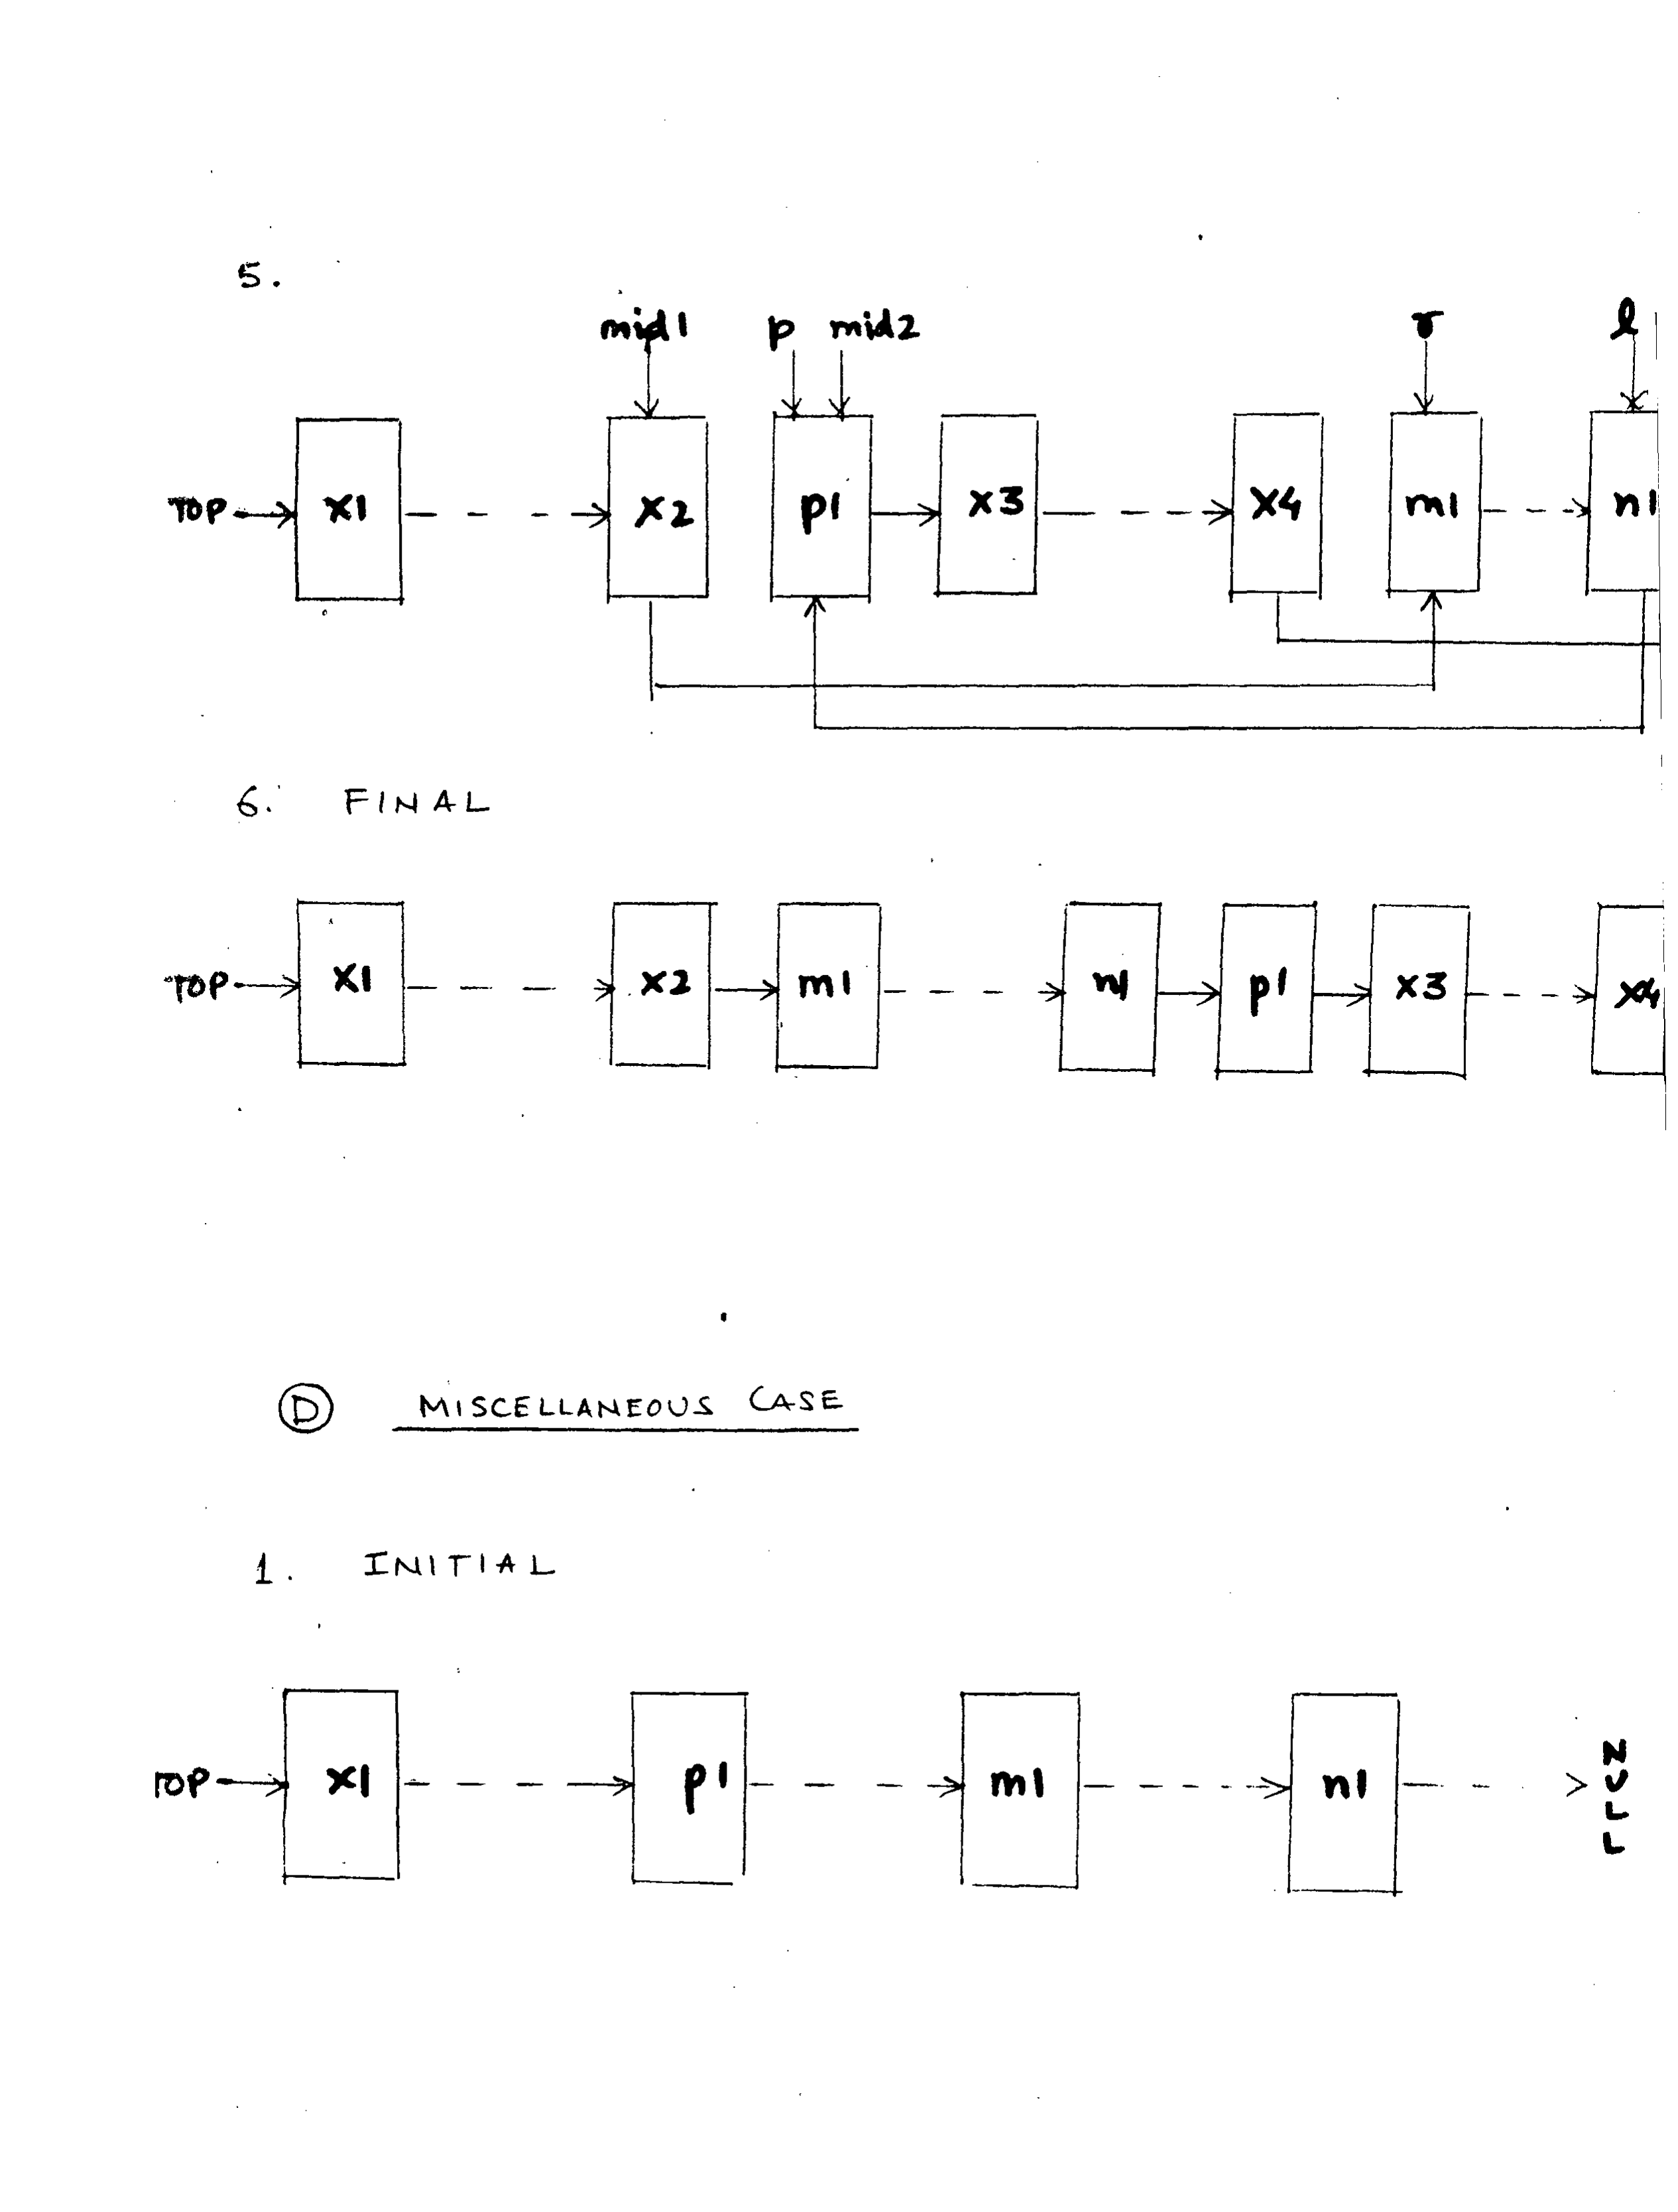 5.
mid1 p mid2 r l
TOP x1 x2 p1 x3 x4 m1 n1
6. FINAL
TOP x1 x2 m1 n1 p1 x3 x4
D MISCELLANEOUS CASE
1. INITIAL
TOP x1 p1 m1 n1 NULL